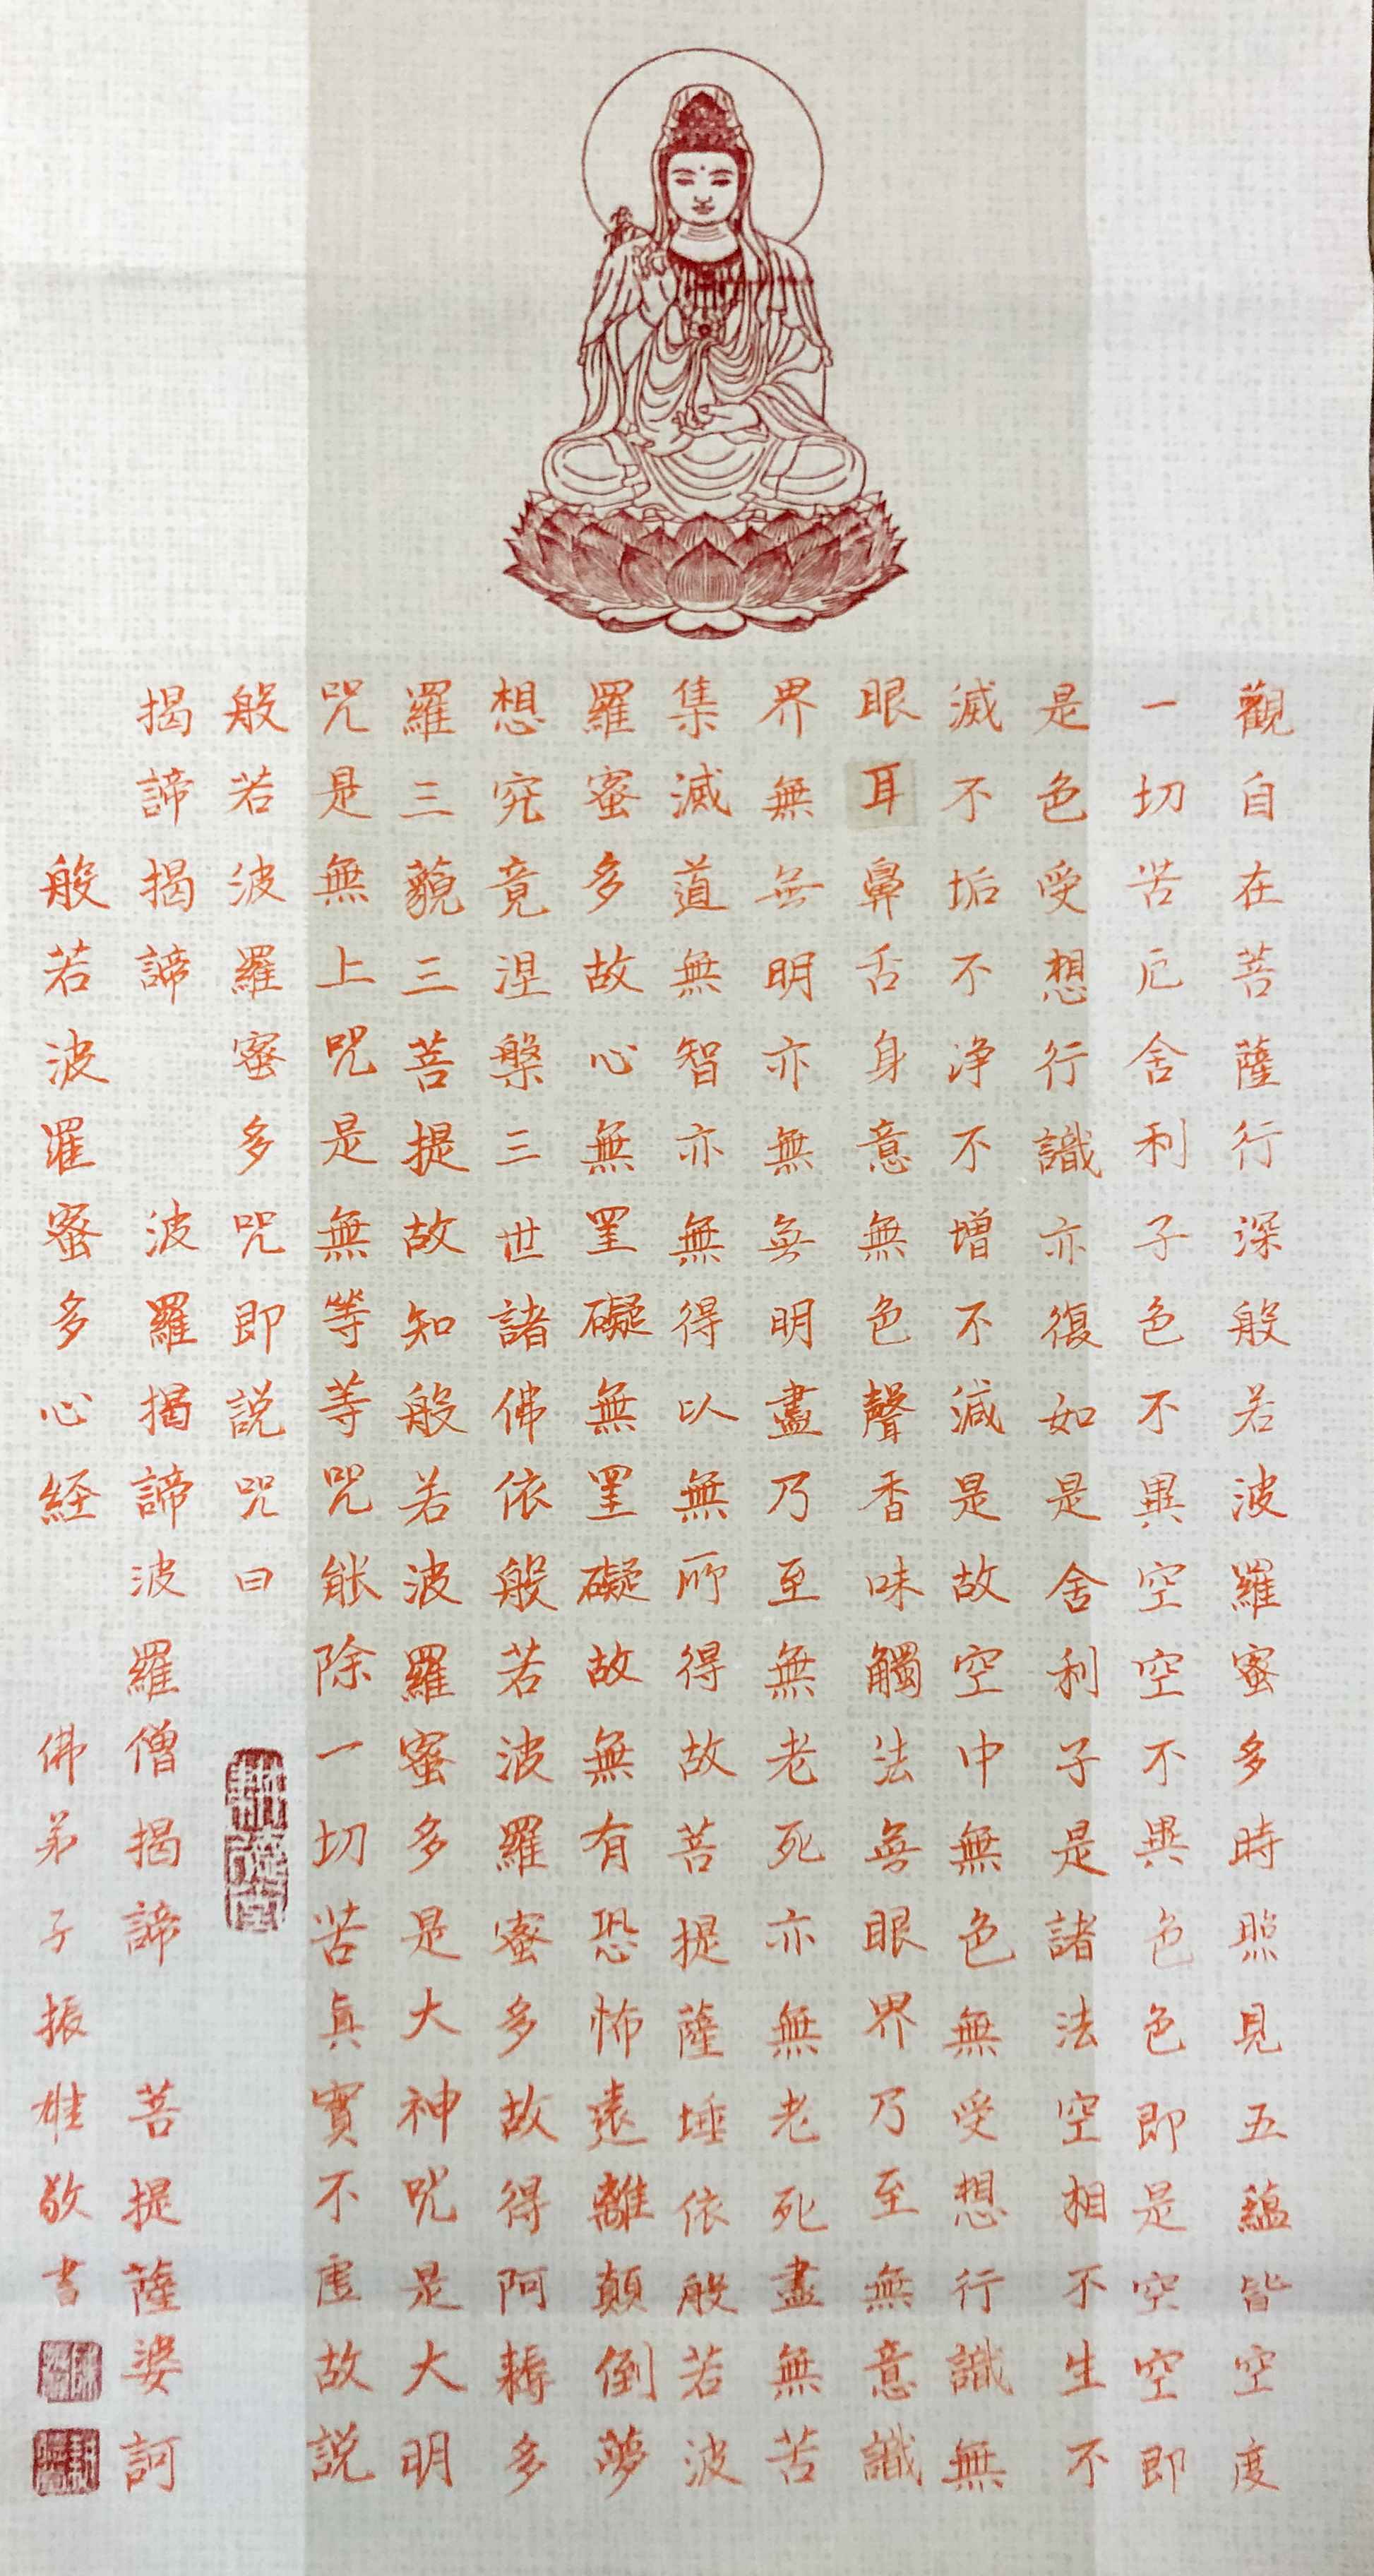 觀自在菩薩行深般若波羅蜜多時照見五蘊皆空度
一切苦厄舍利子色不異空空不異色色即是空空即
是色受想行識亦復如是舍利子是諸法空相不生不
滅不垢不净不增不減是故空中無色無受想行識無
眼耳鼻舌身意無色聲香味觸法無眼界乃至無意識
界無無明亦無無明盡乃至無老死亦無老死盡無苦
集滅道無智亦無得以無所得故菩提薩埵依般若波
羅蜜多故心無罣礙無罣礙故無有恐怖遠離顛倒夢
想究竟涅槃三世諸佛依般若波羅蜜多故得阿耨多
羅三藐三菩提故知般若波羅蜜多是大神咒是大明
咒是無上咒是無等等咒能除一切苦真實不虛故説
般若波羅蜜多咒即説咒曰
揭諦揭諦 波羅揭諦波羅僧揭諦 菩提薩婆訶
般若波羅蜜多心経 佛弟子振雄敬書